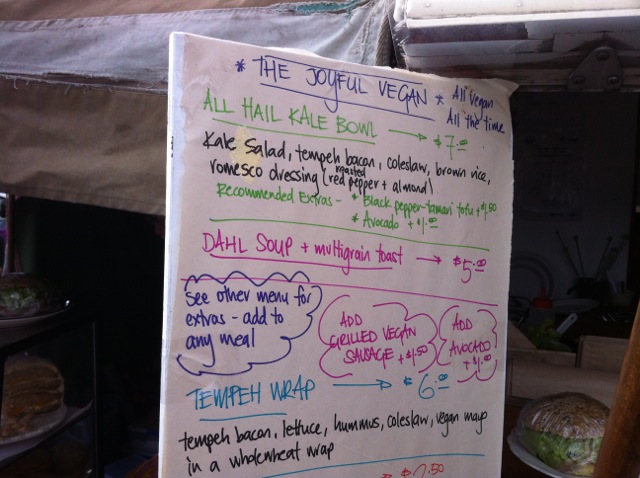 * THE JOYFUL VEGAN * All Vegan
All the time
ALL HAIL KALE BOWL → $7.00
Kale Salad, tempeh bacon, coleslaw, brown rice,
romesco dressing (roasted red pepper + almond)
Recommended Extras - * Black pepper-tamari tofu + $1.50
* Avocado + $1.00
DAHL SOUP + multigrain toast → $5.00
See other menu for
extras - add to
any meal
ADD
GRILLED VEGAN
SAUSAGE + $1.50
ADD
AVOCADO
+ $1.00
TEMPEH WRAP → $6.00
tempeh bacon, lettuce, hummus, coleslaw, vegan mayo
in a wholewheat wrap